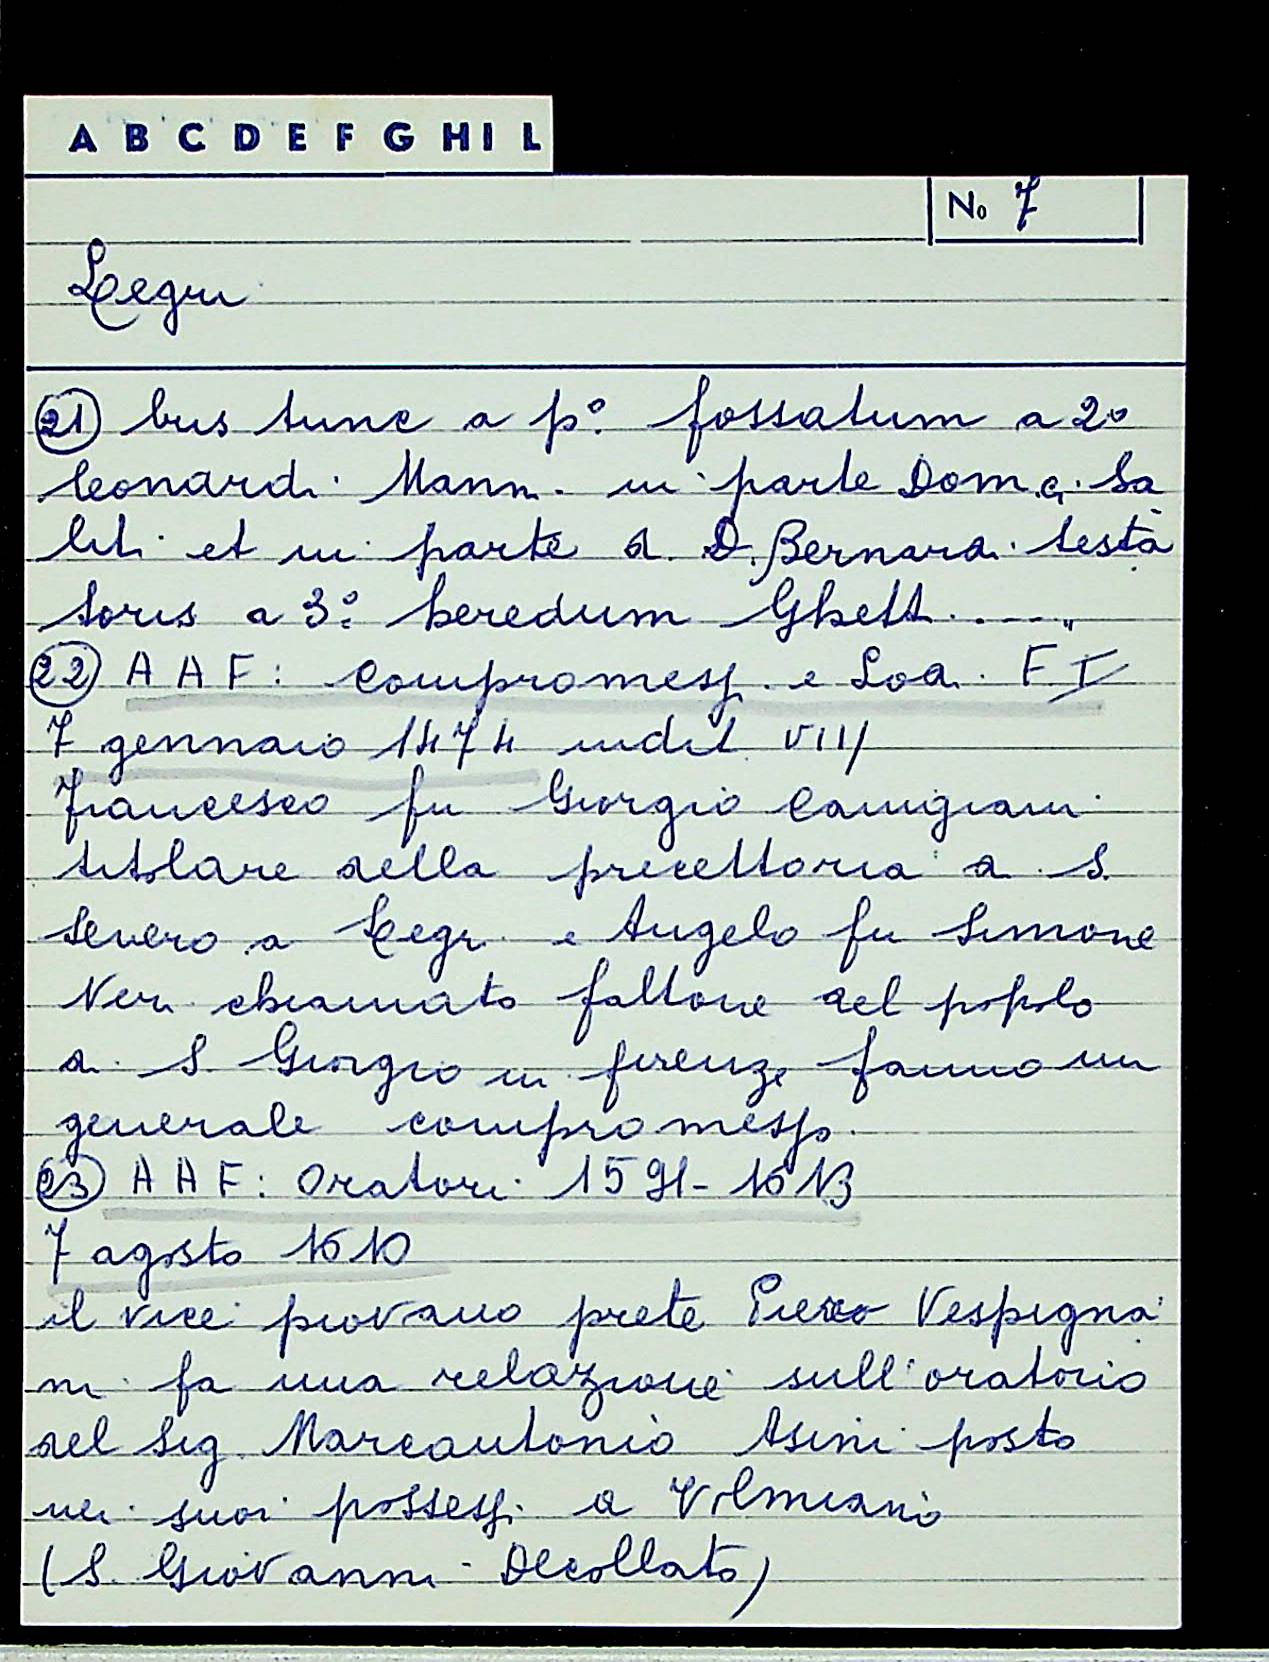 A B C D E F G H I L
No 7
Legri
(21) bus tunc a p°: fossatum a 2°
leonardi Mann. in parte Dom.
liti et in parte d. D. Bernardi testa
toris a 3°: heredum Ghett....."
(22) A A F: Compromessi e Lodi FI
7 gennaio 1474 indit VIII
Francesco fu Giorgio Canigiani
titolare della precettoria di S.
Severo a Legri e Angelo fu Simone
Neri chiamato fattore del popolo
di S. Giorgio in firenze fanno un
generale compromesso.
(23) A A F: Oratori 1591-1613
7 agosto 1610
il vice piovano prete Piero Vespigna
ni fa una relazione sull'oratorio
del Sig. Marcantonio Asini posto
nei suoi possessi a Volmiano
(S. Giovanni Decollato)